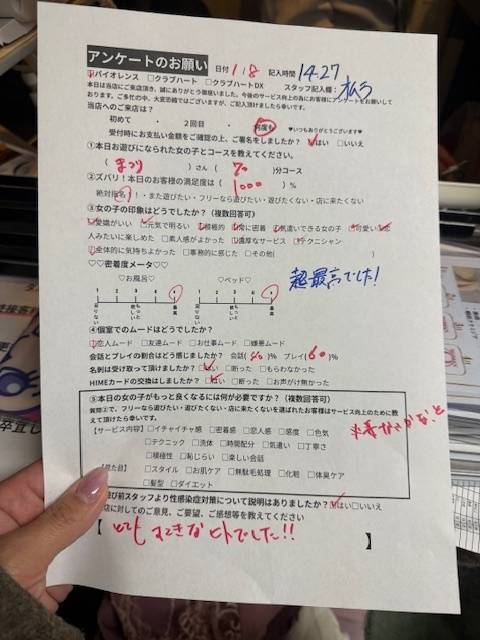 アンケートのお願い 日付 1/8 記入時間 14:27
☑バイオレンス □クラブハート □クラブハートDX スタッフ記入欄:
本日は当店にご来店頂き、誠にありがとう御座いました。今後のサービス向上の為にお客様にアンケートをお願いして
おります。ご多忙の中、大変恐縮ではございますが、ご記入頂けましたら幸いです。
当店へのご来店は?
初めて ・ 2回目 ・ 何度も ♥いつもありがとうございます♥
受付時にお支払い金額をご確認の上、ご署名をしましたか? ☑はい □いいえ
①本日お遊びになられた女の子とコースを教えてください。
( まつり )さん ( 70 )分コース
②ズバリ!本日のお客様の満足度は ( 1000 ) %
絶対指名!・また遊びたい・フリーなら遊びたい・遊びたくない・店に来たくない
③女の子の印象はどうでしたか?(複数回答可)
☑愛嬌がいい □元気で明るい ☑積極的 ☑常に密着 ☑気遣いできる女の子 ☑可愛い ☑恋
人みたいに楽しめた □素人感がよかった ☑濃厚なサービス ☑テクニシャン
☑全体的に気持ちよかった □事務的に感じた □その他( )
♡♡密着度メータ♡♡
♡お風呂♡ ♡ベッド♡
超最高でした!
1 2 3 4 5 1 2 3 4 5
足りない もっと欲しい 最高 足りない もっと欲しい 最高
④個室でのムードはどうでしたか?
☑恋人ムード □友達ムード □お仕事ムード □嫌悪ムード
会話とプレイの割合はどう感じましたか? 会話(40)% プレイ(60)%
名刺は受け取って頂けましたか? ☑はい □断った □もらわなかった
HIMEカードの交換はしましたか? ☑はい □断った □お声がけ無かった
⑤本日の女の子がもっと良くなるには何が必要ですか?(複数回答可)
質問②で、フリーなら遊びたい・遊びたくない・店に来たくないを選ばれたお客様はサービス向上のために教
えて頂けたら幸いです。
【サービス内容】□イチャイチャ感 □密着感 □恋人感 □感度 □色気
□テクニック □洗体 □時間配分 □気遣い □丁寧さ
□積極性 □恥じらい □楽しい会話
【見た目】 □スタイル □お肌ケア □無駄毛処理 □化粧 □体臭ケア
□髪型 □ダイエット
び前スタッフより性感染症対策について説明はありましたか? ☑はい □いいえ
店に対してのご意見、ご要望、ご感想等を教えてください
【 とても すてきな ヒトでした!! 】